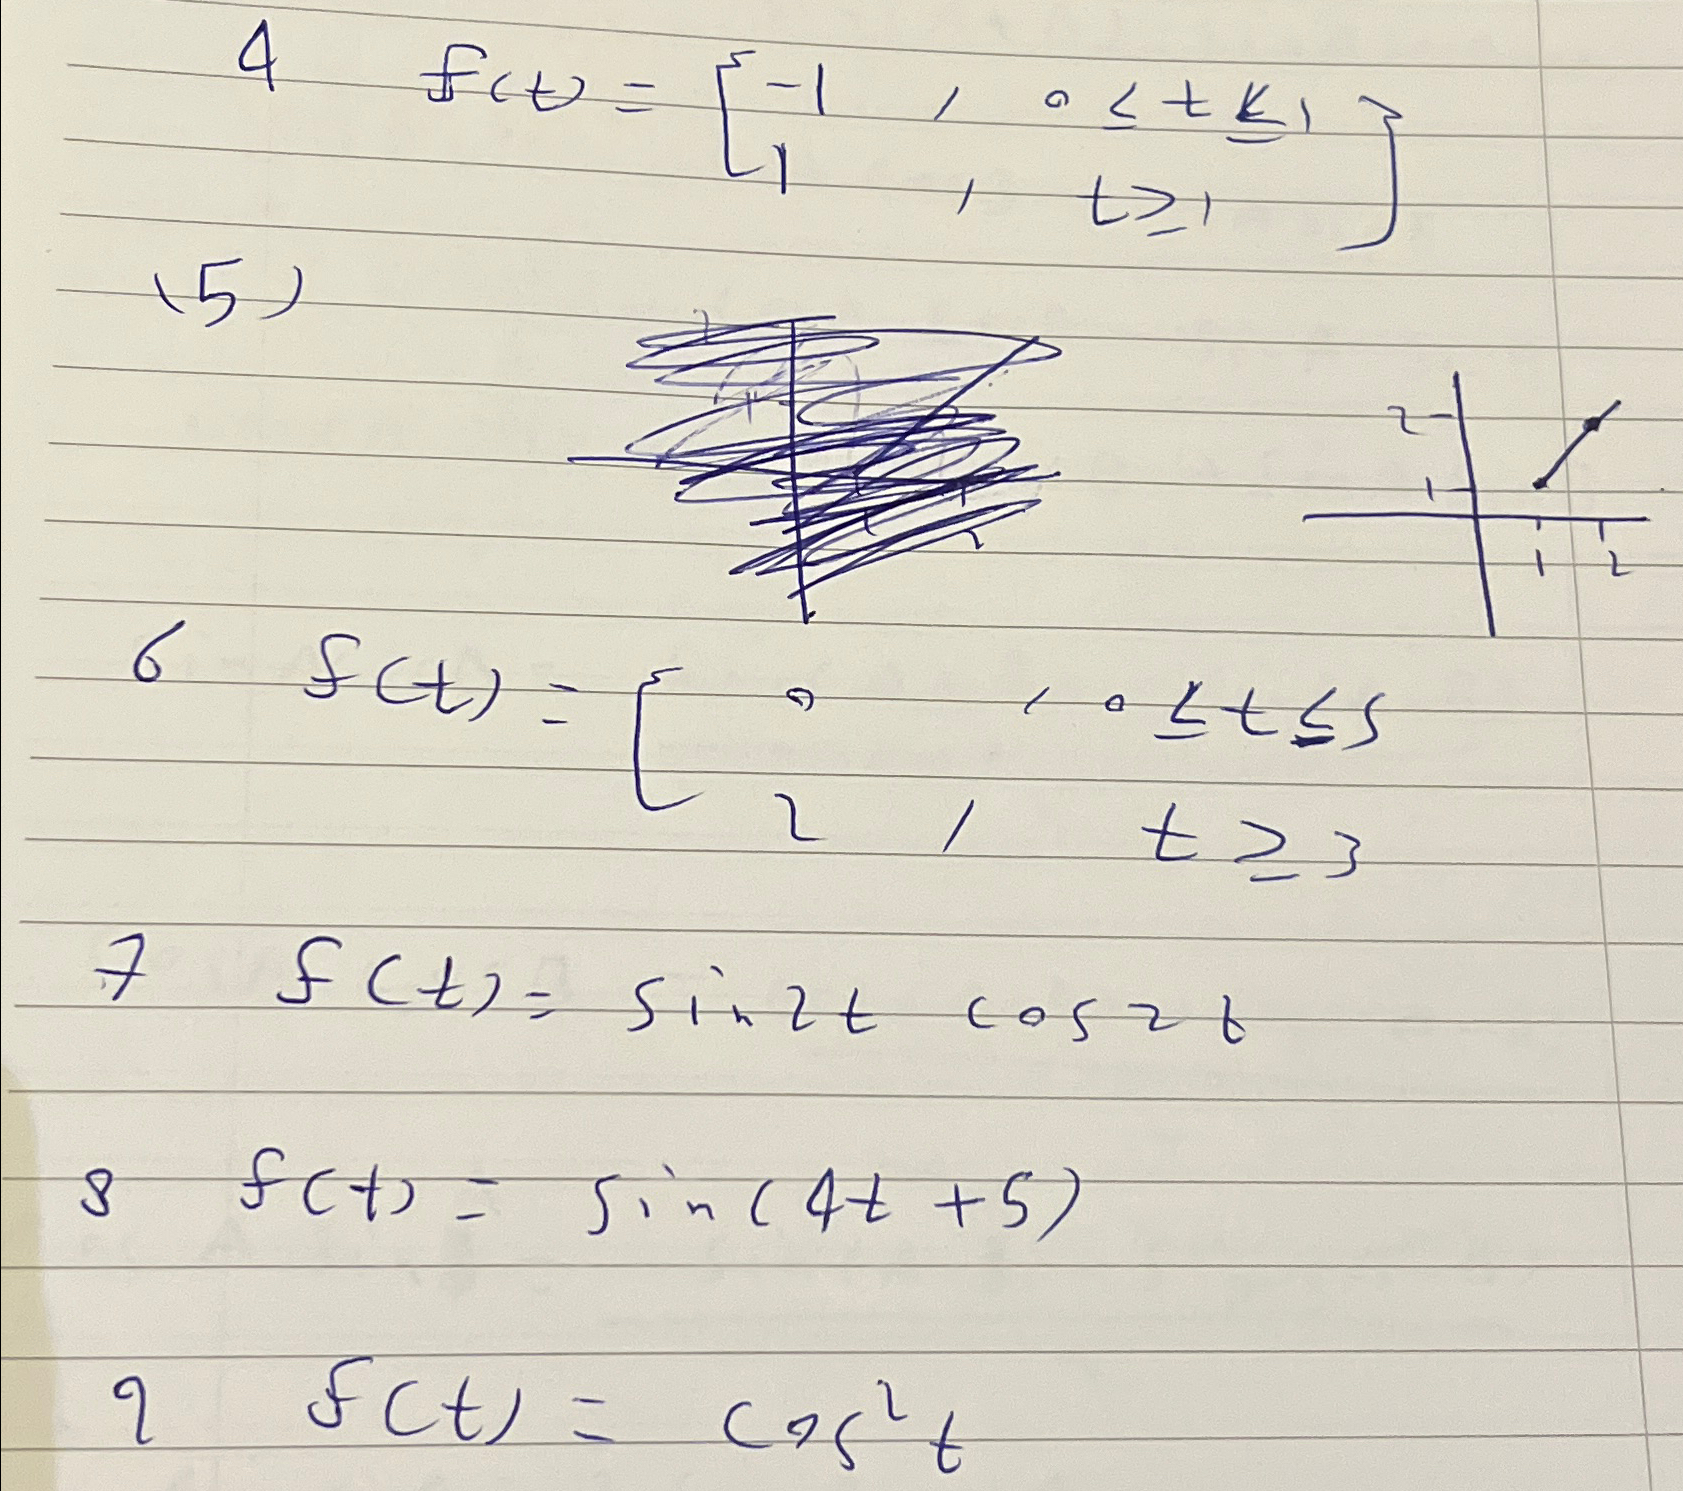 4 f(t) = { -1 , 0 ≤ t ≤ 1 }
1 , t ≥ 1
(5)
2
1
1 2
6 f(t) = { 0 , 0 ≤ t ≤ 5
2 , t ≥ 3
7 f(t) = sin2t cos2t
8 f(t) = sin(4t + 5)
9 f(t) = cos²t